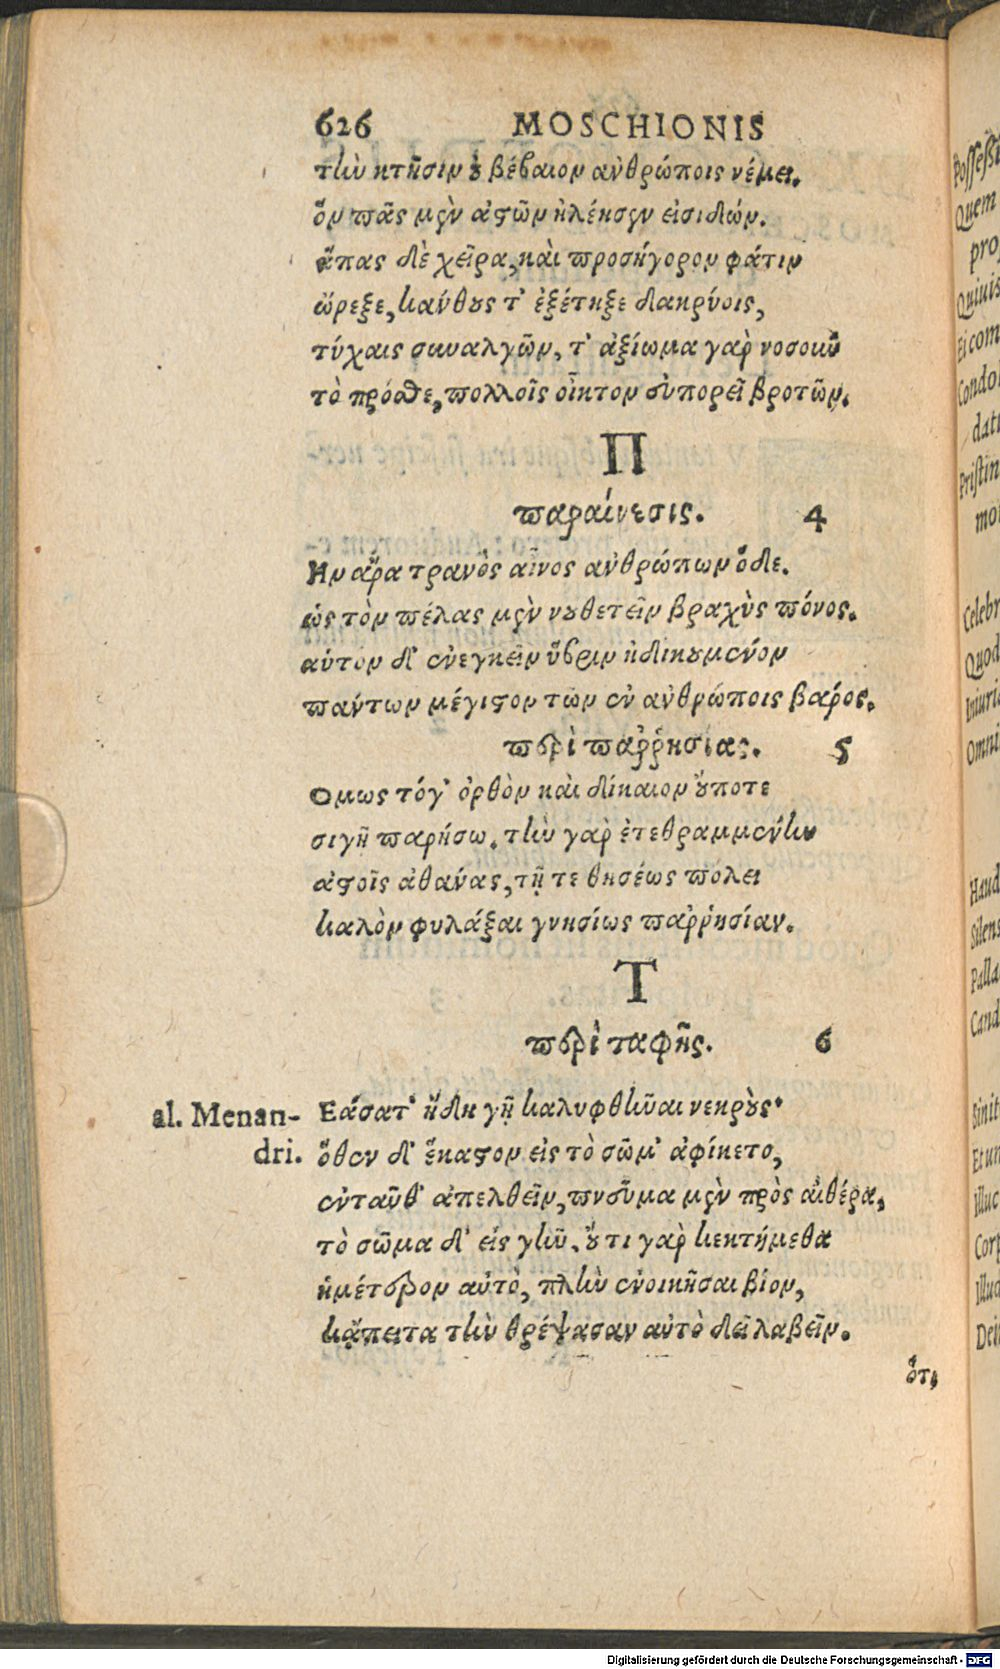 626 MOSCHIONIS
τὴν κτῆσιν οὐ βέβαιον ἀνθρώποις νέμει.
ὃν πᾶς μὲν ἀστῶν ἠλέησεν εἰσιδών.
ἅπας δὲ χεῖρα, καὶ προσήγορον φάτιν
ὤρεξε, κανθούς τ' ἐξέτηξε δακρύοις,
τύχαις συναλγῶν, τ' ἀξίωμα γὰρ νοσοῦν
τὸ πρόσθε, πολλοῖς οἶκτον εὐπορεῖ βροτῶν.
Π
παραίνεσις. 4
Ην ἄρα τρανὸς αἶνος ἀνθρώπων ὅδε.
ὡς τὸν πέλας μὲν νουθετεῖν βραχὺς πόνος.
αὐτὸν δ' ἐνεγκεῖν ὕβριν ἠδικουμένον
πάντων μέγιστον τῶν ἐν ἀνθρώποις βάρος.
περὶ παῤῥησίας. 5
Ομως τόγ' ὀρθὸν καὶ δίκαιον οὔποτε
σιγῇ παρήσω. τὴν γὰρ ἐτεθραμμένην
ἀστοῖς ἀθάνας, τῇ τε θησέως πόλει
καλὸν φυλάξαι γνησίως παῤῥησίαν.
Τ
περὶ ταφῆς. 6
al. Menan-
dri.
Εάσατ' ἤδη γῇ καλυφθῆναι νεκρούς·
ὅθεν δ' ἕκαστον εἰς τὸ σῶμ' ἀφίκετο,
ἐνταῦθ' ἀπελθεῖν, πνεῦμα μὲν πρὸς αἰθέρα,
τὸ σῶμα δ' εἰς γῆν. οὔτι γὰρ κεκτήμεθα
ἡμέτερον αὐτὸ, πλὴν ἐνοικῆσαι βίον,
κᾄπειτα τὴν θρέψασαν αὐτὸ δεῖ λαβεῖν.
ὅτι
Possessi
Quem
pro
Quiuis
Ei com
Condol
dat
Pristin
mo
Celebr
Quod
Iniuri
Omni
Haud
Silens
Palla
Cand
Sinit
Et un
Illuc
Corp
Illud
Dei
Digitalisierung gefördert durch die Deutsche Forschungsgemeinschaft - DFG